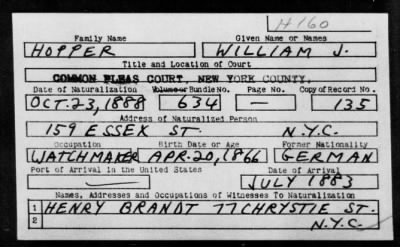 H160
Family Name Given Name or Names
HOPPER WILLIAM J.
Title and Location of Court
COMMON PLEAS COURT, NEW YORK COUNTY.
Date of Naturalization Volume or Bundle No. Page No. Copy of Record No.
OCT. 23, 1888 634 — 135
Address of Naturalized Person
159 ESSEX ST. N.Y.C.
Occupation Birth Date or Age Former Nationality
WATCHMAKER APR. 20, 1866 GERMAN
Port of Arrival in the United States Date of Arrival
— JULY 1883
Names, Addresses and Occupations of Witnesses To Naturalization
1 HENRY BRANDT 77 CHRYSTIE ST.
2 N.Y.C.